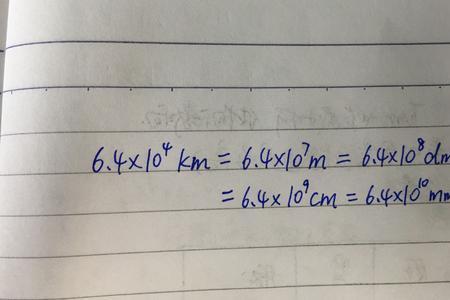 6.4×10⁴ km = 6.4×10⁷ m = 6.4×10⁸ dm
= 6.4×10⁹ cm = 6.4×10¹⁰ mm